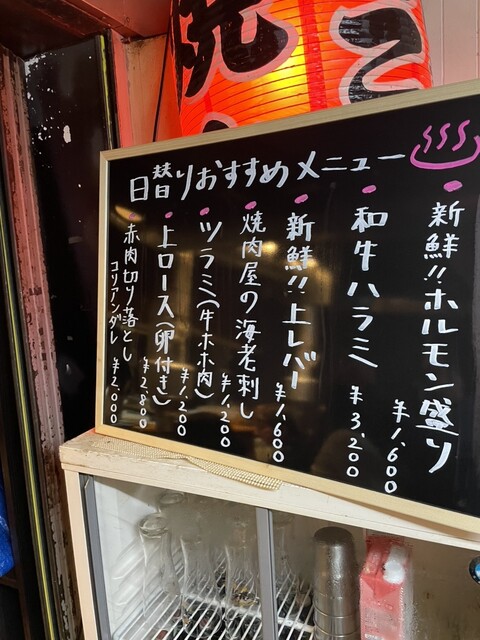 日替りおすすめメニュー
新鮮!!ホルモン盛り
¥1,600
和牛ハラミ
¥3,200
新鮮!!上レバー
¥1,600
焼肉屋の海老刺し
¥1,200
ツラミ(牛ホホ肉)
¥1,200
上ロース(卵付き)
¥2,800
赤肉切り落とし
コリアンダレ ¥2,000